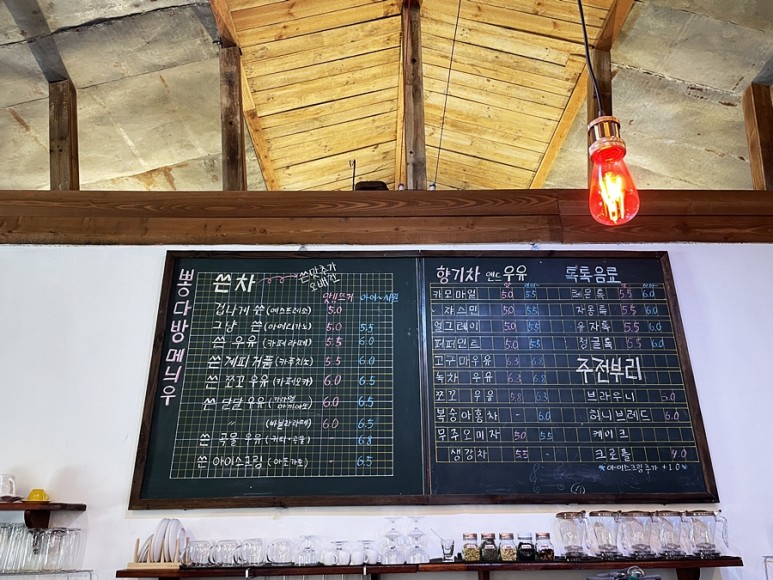 뽕다방메늬우
쓴차 쓴맛추가
오백전
앗!뜨거 아아~시원
겁나게 쓴 (에스프레소) 5.0
그냥 쓴 (아메리카노) 5.0 5.5
쓴 우유 (카페라떼) 5.5 6.0
쓴 계피거품 (카푸치노) 5.5 6.0
쓴 쪼꼬우유 (카페모카) 6.0 6.5
쓴 달달우유 (카라멜마끼아또) 6.0 6.5
〃 (바닐라라떼) 6.0 6.5
쓴 곡물 우유 6.8
쓴 아이스크림 (아포가토) - 6.5
향기차 앤드 우유
카모마일 5.0 5.5
쟈스민 5.0 5.5
얼그레이 5.0 5.5
퍼퍼민트 5.0 5.5
고구마우유 6.3 6.8
녹차 우유 6.3 6.8
쪼꼬 우유 5.8 6.3
복숭아홍차 - 6.0
무주오미자 5.0 5.5
생강차 5.5 -
톡톡음료
레몬톡 5.5 6.0
자몽톡 5.5 6.0
유자톡 5.5 6.0
청귤톡 5.5 6.0
주전부리
브라우니 5.0
허니브레드 6.0
케이크
크로플 4.0
*아이스크림추가 +1.0*